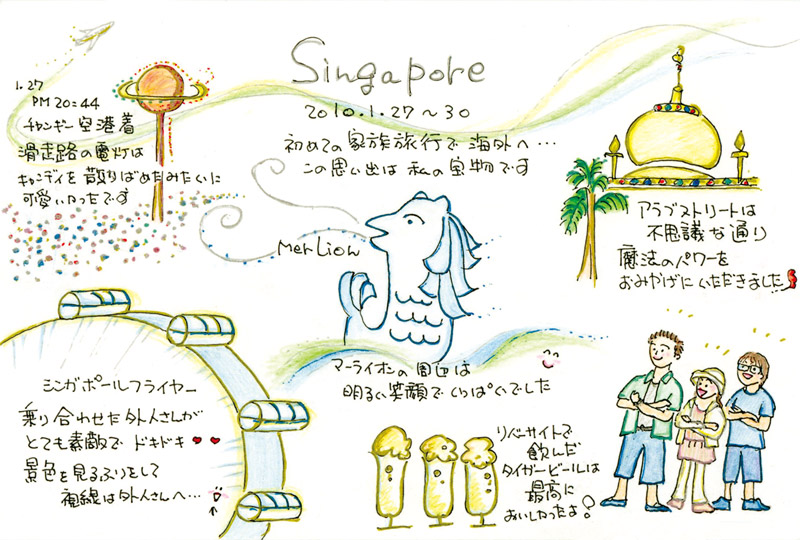 Singapore
2010.1.27～30
初めての家族旅行で海外へ…
この思い出は私の宝物です
1.27
PM20:44
チャンギー空港着
滑走路の電灯は
キャンディを散りばめたみたいに
可愛いかったです
Merlion
アラブストリートは
不思議な通り
魔法のパワーを
おみやげにいただきました
マーライオンの周辺は
明るい笑顔でいっぱいでした
シンガポールフライヤー
乗り合わせた外人さんが
とても素敵でドキドキ
景色を見るふりをして
視線は外人さんへ…
リバーサイドで
飲んだ
タイガービールは
最高に
おいしかったよ!